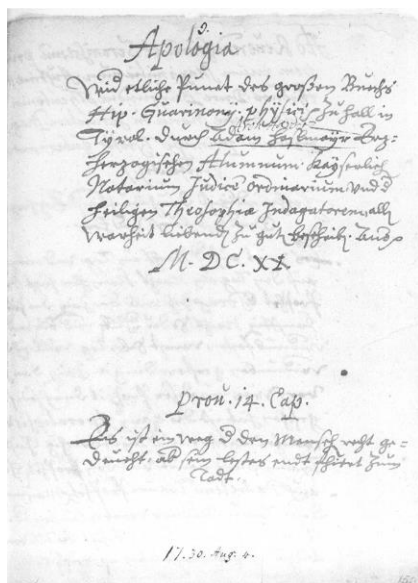 Apologia
Wid etliche Punct des großen Buchs
Hip. Guarinonij. physici zu hall in
Tyrol. durch Adam Haslmayr Erz-
herzogischen Alumnum. Kayserlich
Notarium Judice ordinarium vnd d
heiligen Theosophiæ Indagatorem all
warheit liebend zu gut
M. DC. XX
Prou. 14. Cap.
Es ist ein weg d den Mensch recht ge-
deucht, ab sein letstes endt zum
Todt
17.30. Aug. 4.